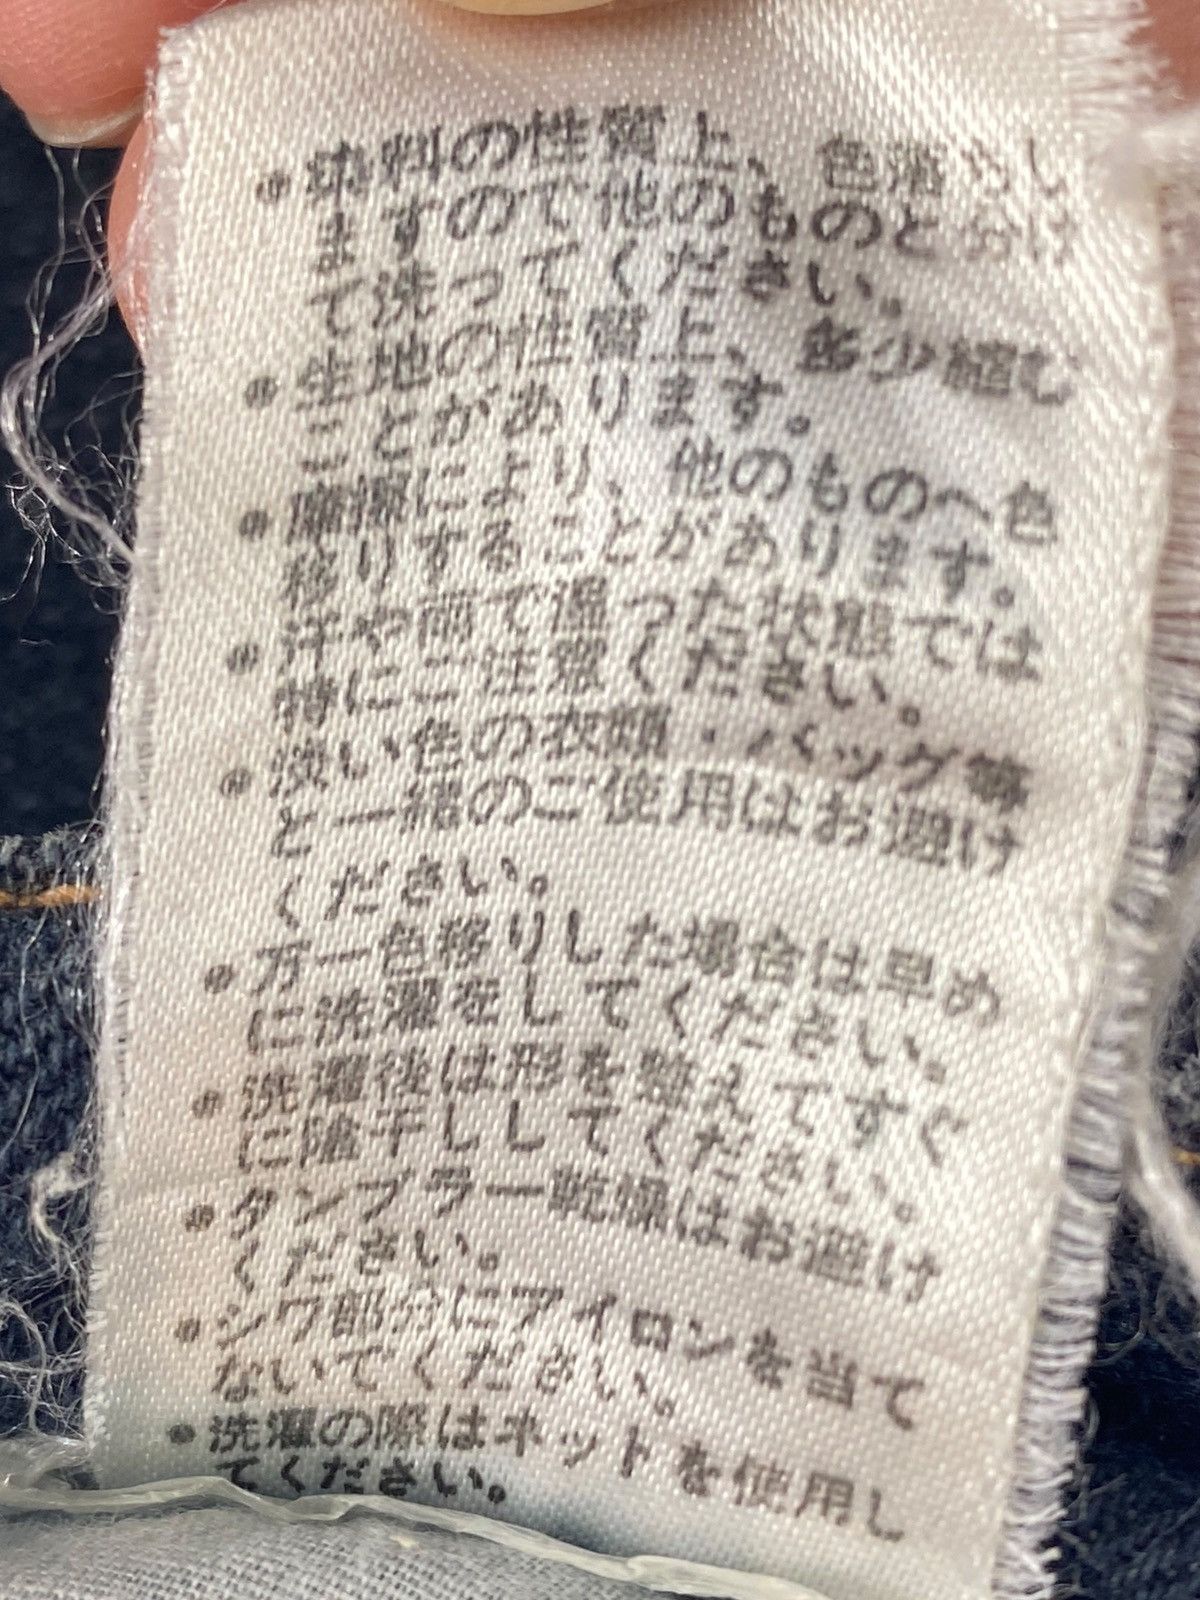 ●染料の性質上、色落ちし
ますので他のものと分け
て洗ってください。
●生地の性質上、多少縮む
ことがあります。
●摩擦により、他のものへ色
移りすることがあります。
●汗や雨で湿った状態では
特にご注意ください。
●淡い色の衣類・バッグ等
と一緒のご使用はお避け
ください。
●万一色移りした場合は早め
に洗濯をしてください。
●洗濯後は形を整えてすぐ
に陰干ししてください。
●タンブラー乾燥はお避け
ください。
●シワ部分にアイロンを当て
ないでください。
●洗濯の際はネットを使用し
てください。